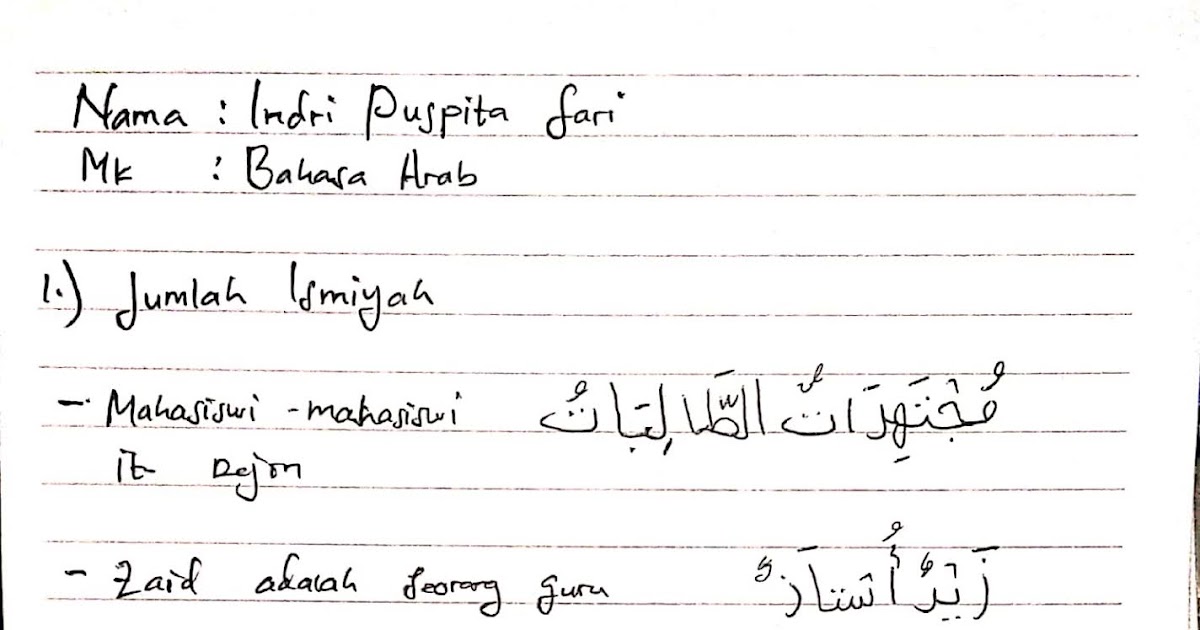 Nama : Indri Puspita Sari
Mk : Bahasa Arab
1.) Jumlah Ismiyah
- Mahasiswi - mahasiswi مُجْتَهِدَاتٌ الطَّالِبَاتُ
it Rajin
- Zaid adalah seorang guru زَيْدٌ أُسْتَاذٌ